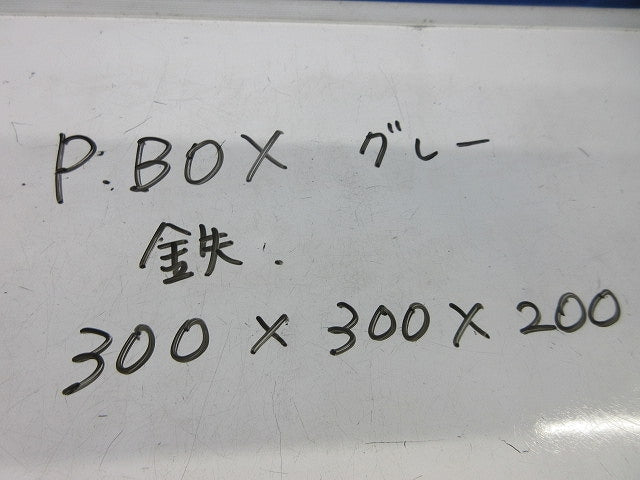 P.BOX グレー
鉄.
300 × 300 × 200